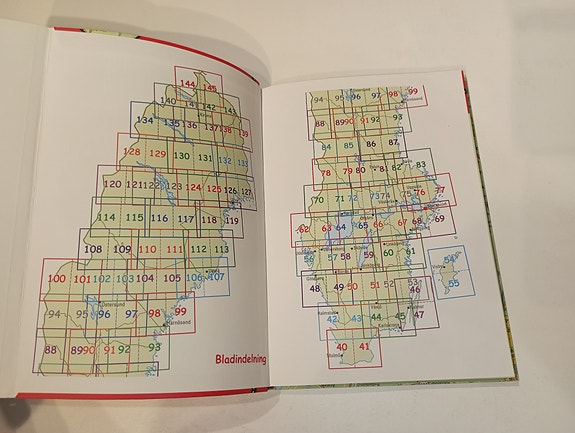 144 145
140 141 142 143
134 135 136 137 138 139
128 129 130 131 132 133
120 121 122 123 124 125 126 127
114 115 116 117 118 119
108 109 110 111 112 113
100 101 102 103 104 105 106 107
Östersund
94 95 96 97 98 99
Härnösand
88 89 90 91 92 93
Bladindelning
94 95 96 97 98 99
Härnösand
88 89 90 91 92 93
84 85 86 87
78 79 80 81 82 83
70 71 72 73 74 75 76 77
62 63 64 65 66 67 68 69
56 57 58 59 60 61
Visby 54
48 49 50 51 52 53
55
46
42 43 44 45 47
Karlskrona
40 41
Malmö